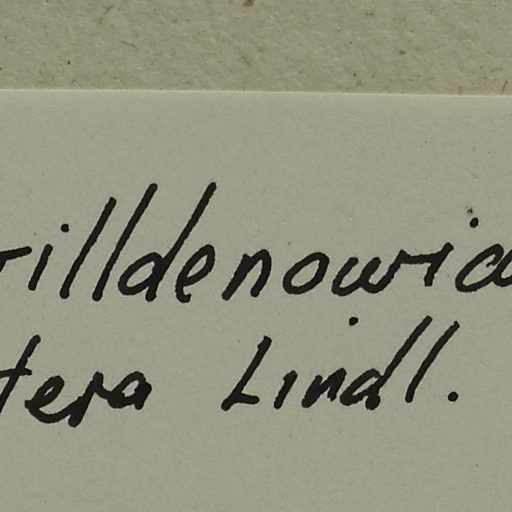 willdenowia
tera Lindl.